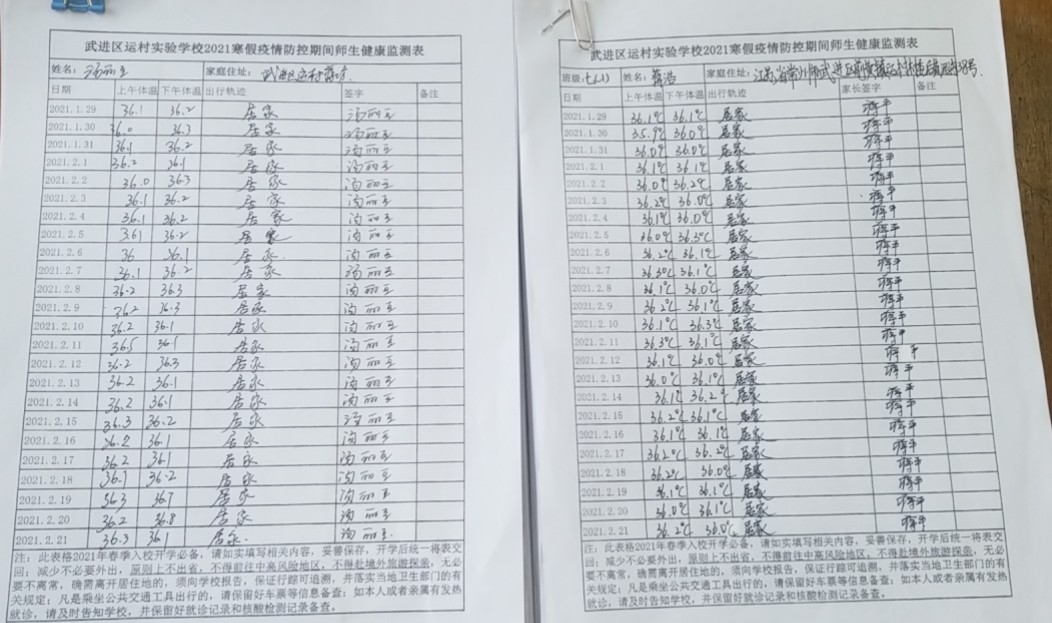 武进区运村实验学校2021寒假疫情防控期间师生健康监测表
姓名：汤丽玉 家庭住址：武进区运村
日期 上午体温 下午体温 出行轨迹 签字 备注
2021.1.29 36.1 36.2 居家 汤丽玉
2021.1.30 36.0 36.3 居家 汤丽玉
2021.1.31 36.1 36.2 居家 汤丽玉
2021.2.1 36.2 36.1 居家 汤丽玉
2021.2.2 36.0 36.3 居家 汤丽玉
2021.2.3 36.1 36.2 居家 汤丽玉
2021.2.4 36.1 36.2 居家 汤丽玉
2021.2.5 3.61 36.2 居家 汤丽玉
2021.2.6 36 36.1 居家 汤丽玉
2021.2.7 36.1 36.2 居家 汤丽玉
2021.2.8 36.2 36.3 居家 汤丽玉
2021.2.9 36.2 36.3 居家 汤丽玉
2021.2.10 36.2 36.1 居家 汤丽玉
2021.2.11 36.5 36.1 居家 汤丽玉
2021.2.12 36.2 36.3 居家 汤丽玉
2021.2.13 36.2 36.1 居家 汤丽玉
2021.2.14 36.2 36.1 居家 汤丽玉
2021.2.15 36.3 36.2 居家 汤丽玉
2021.2.16 36.2 36.1 居家 汤丽玉
2021.2.17 36.2 36.1 居家 汤丽玉
2021.2.18 36.1 36.2 居家 汤丽玉
2021.2.19 36.3 36.7 居家 汤丽玉
2021.2.20 36.2 36.8 居家 汤丽玉
2021.2.21 36.3 36.1 居家 汤丽玉
注：此表格2021年春季入校开学必备，请如实填写相关内容，妥善保存，开学后统一将表交
回；减少不必要外出，原则上不出省，不得前往中高风险地区，不得赴境外旅游探亲，无必
要不离常，确需离开居住地的，须向学校报告，保证行踪可追溯，并落实当地卫生部门的有
关规定；凡是乘坐公共交通工具出行的，请保留好车票等信息备查；如本人或者亲属有发热
就诊，请及时告知学校，并保留好就诊记录和核酸检测记录备查。
武进区运村实验学校2021寒假疫情防控期间师生健康监测表
班级：七(1) 姓名：蒋浩 家庭住址：江苏省常州市武进区
日期 上午体温 下午体温 出行轨迹 家长签字 备注
2021.1.29 36.1℃ 36.1℃ 居家 蒋平
2021.1.30 35.9℃ 36.0℃ 居家 蒋平
2021.1.31 36.0℃ 36.0℃ 居家 蒋平
2021.2.1 36.1℃ 36.1℃ 居家 蒋平
2021.2.2 36.0℃ 36.2℃ 居家 蒋平
2021.2.3 36.2℃ 36.0℃ 居家 蒋平
2021.2.4 36.1℃ 36.0℃ 居家 蒋平
2021.2.5 36.0℃ 36.3℃ 居家 蒋平
2021.2.6 36.2℃ 36.1℃ 居家 蒋平
2021.2.7 36.3℃ 36.1℃ 居家 蒋平
2021.2.8 36.1℃ 36.0℃ 居家 蒋平
2021.2.9 36.2℃ 36.1℃ 居家 蒋平
2021.2.10 36.1℃ 36.3℃ 居家 蒋平
2021.2.11 36.3℃ 36.1℃ 居家 蒋平
2021.2.12 36.1℃ 36.0℃ 居家 蒋平
2021.2.13 36.0℃ 36.1℃ 居家 蒋平
2021.2.14 36.1℃ 36.2℃ 居家 蒋平
2021.2.15 36.2℃ 36.1℃ 居家 蒋平
2021.2.16 36.1℃ 36.1℃ 居家 蒋平
2021.2.17 36.2℃ 36.2℃ 居家 蒋平
2021.2.18 36.2℃ 36.0℃ 居家 蒋平
2021.2.19 36.1℃ 36.1℃ 居家 蒋平
2021.2.20 36.0℃ 36.1℃ 居家 蒋平
2021.2.21 36.2℃ 36.0℃ 居家 蒋平
注：此表格2021年春季入校开学必备，请如实填写相关内容，妥善保存，开学后统一将表交
回；减少不必要外出，原则上不出省，不得前往中高风险地区，不得赴境外旅游探亲，无必
要不离常，确需离开居住地的，须向学校报告，保证行踪可追溯，并落实当地卫生部门的有
关规定；凡是乘坐公共交通工具出行的，请保留好车票等信息备查；如本人或者亲属有发热
就诊，请及时告知学校，并保留好就诊记录和核酸检测记录备查。